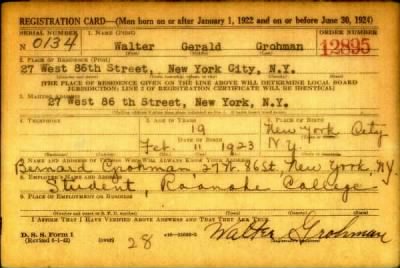 REGISTRATION CARD—(Men born on or after January 1, 1922 and on or before June 30, 1924)
SERIAL NUMBER 1. NAME (Print) ORDER NUMBER
N 0134 Walter Gerald Grohman 12895
2. PLACE OF RESIDENCE (Print)
27 West 86th Street, New York City, N.Y.
[THE PLACE OF RESIDENCE GIVEN ON THE LINE ABOVE WILL DETERMINE LOCAL BOARD
JURISDICTION; LINE 2 OF REGISTRATION CERTIFICATE WILL BE IDENTICAL]
3. MAILING ADDRESS
27 West 86 th Street, New York, N.Y.
4. TELEPHONE 5. AGE IN YEARS 6. PLACE OF BIRTH
19 New York City
DATE OF BIRTH
Feb. 11 1923 N.Y.
7. NAME AND ADDRESS OF PERSON WHO WILL ALWAYS KNOW YOUR ADDRESS
Bernard Grohman 27 W. 86 St, New York, N.Y.
8. EMPLOYER'S NAME AND ADDRESS
Student, Roanoke College
9. PLACE OF EMPLOYMENT OR BUSINESS
I AFFIRM THAT I HAVE VERIFIED ABOVE ANSWERS AND THAT THEY ARE TRUE.
D. S. S. Form 1
(Revised 6-1-42) (over) 28 Walter Grohman